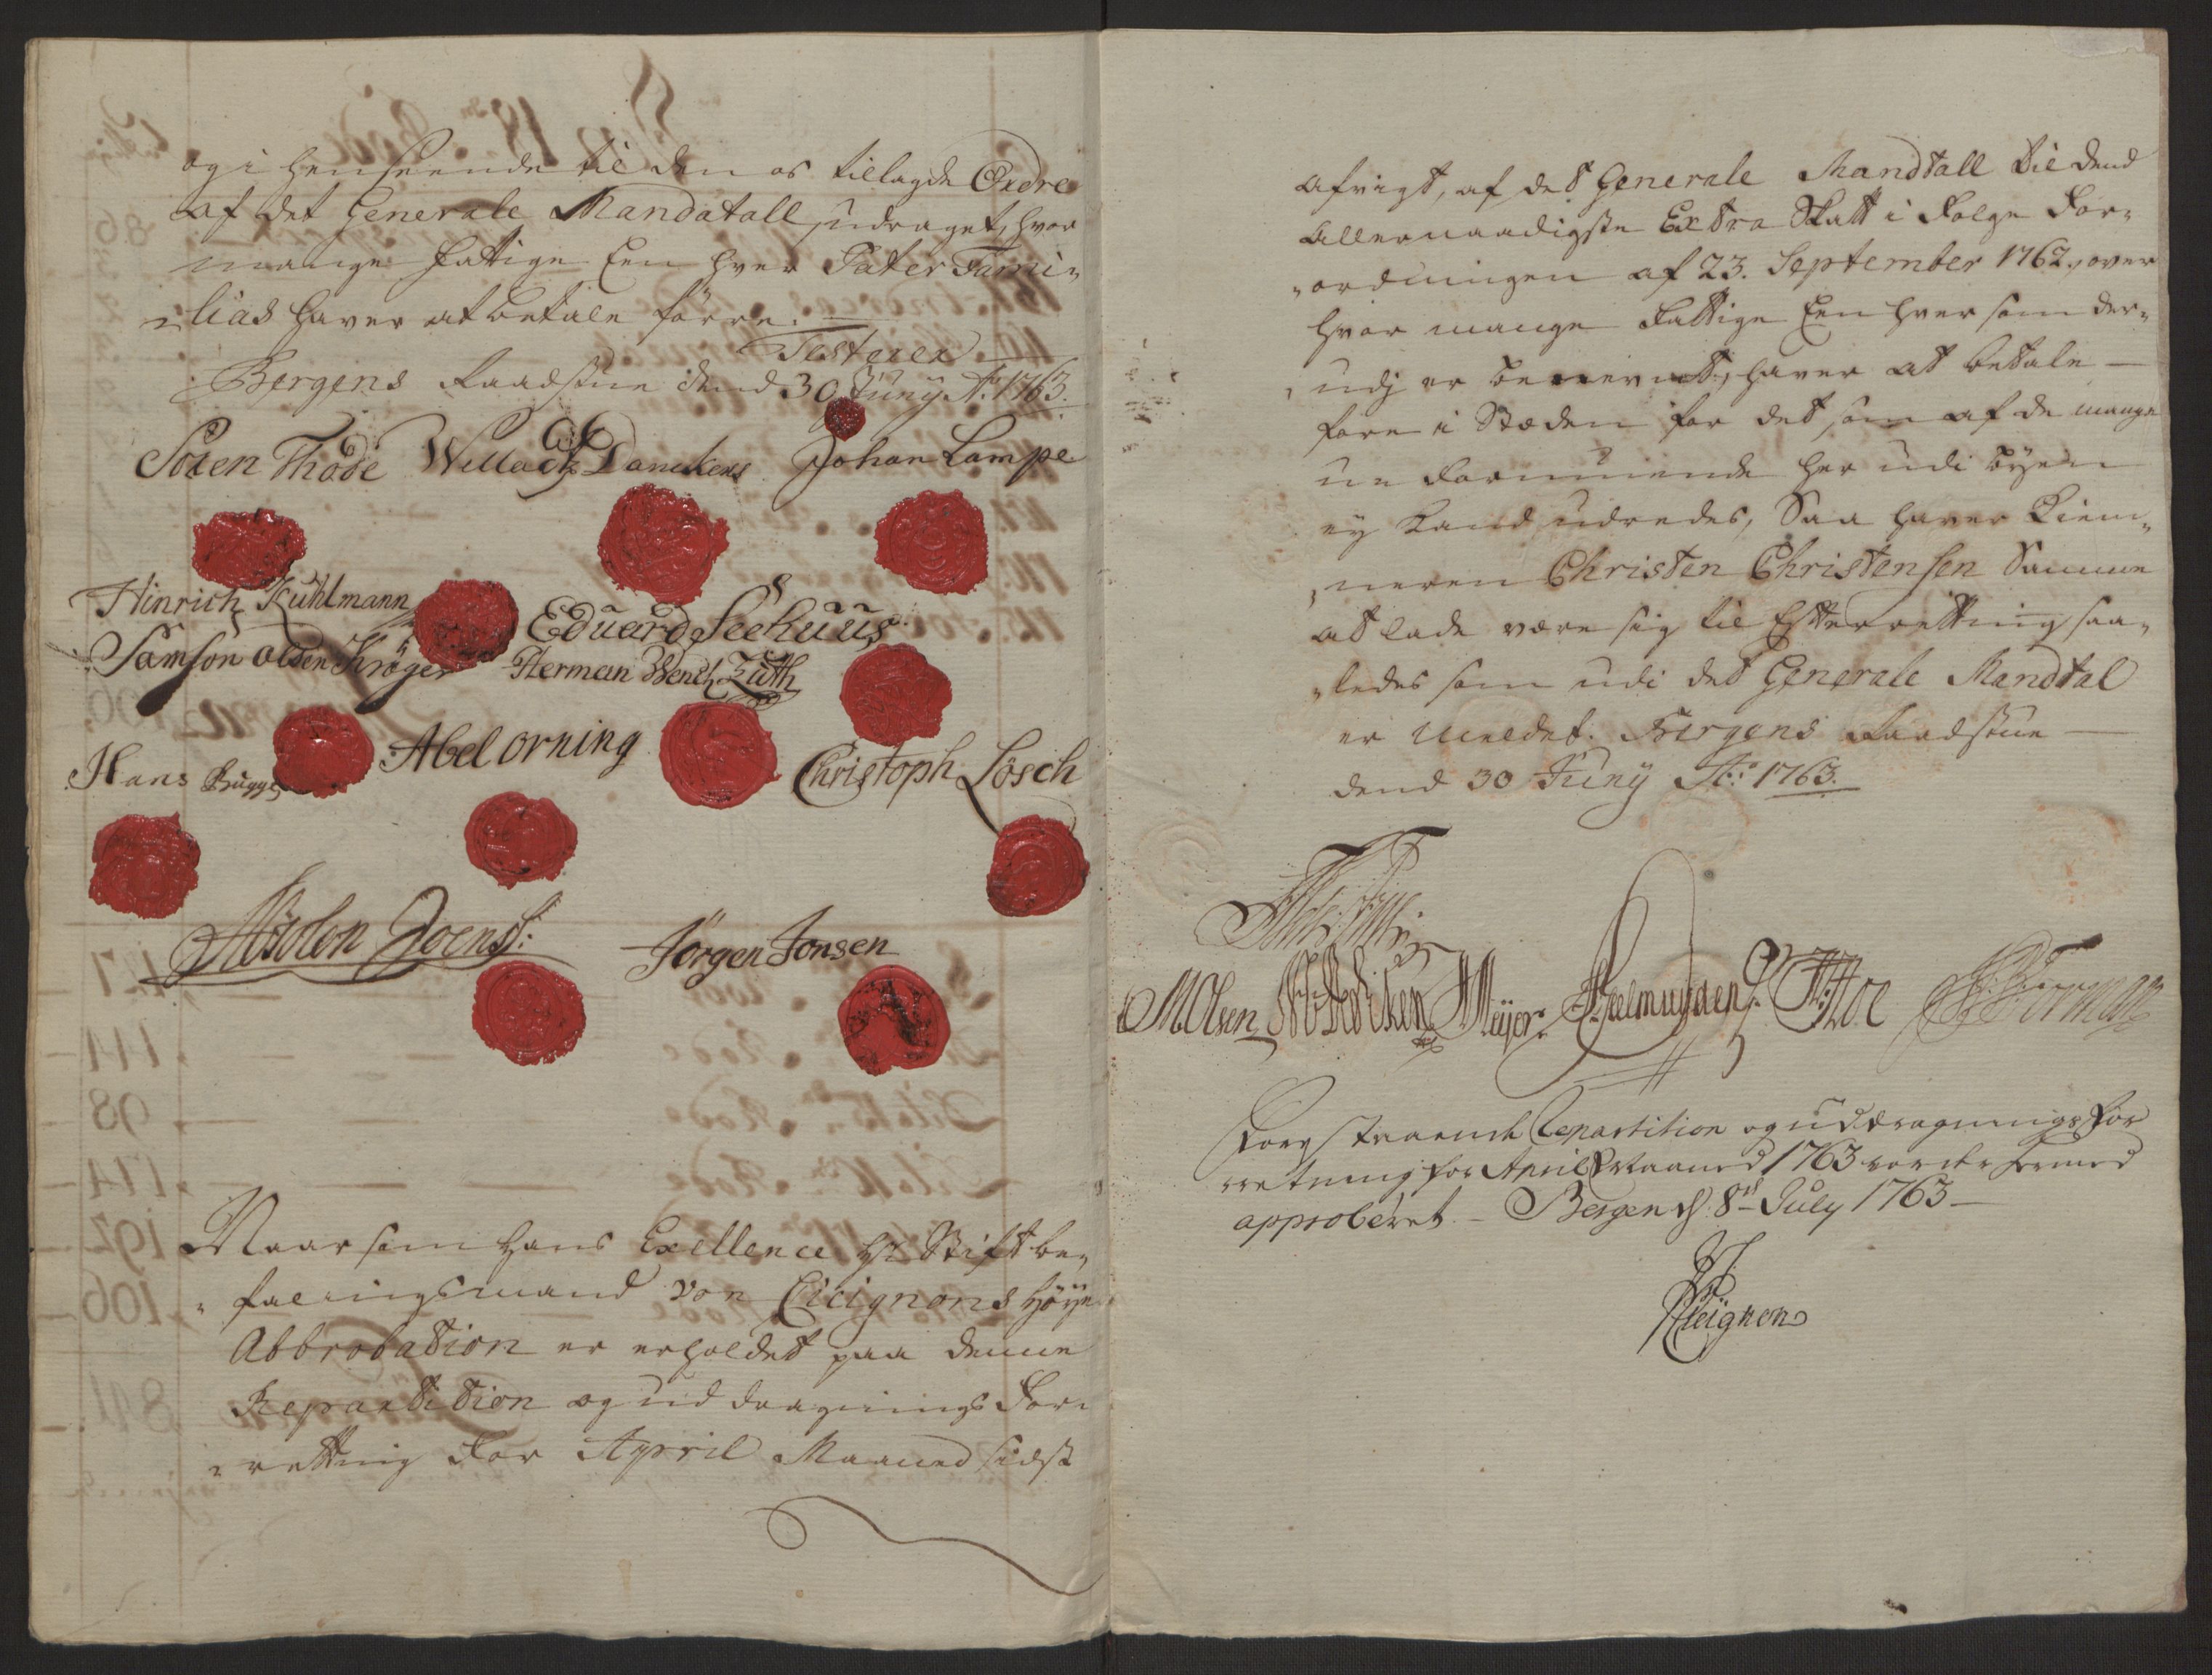 og i henseende til den os tillagde Ordre
af det Generale Mandatall udraget, hvor
mange fattige Een hver Pater Fami„
„lias haver at betale förre. —
Testerer
Bergens Raadstue dend 30 Juny Ao. 1763.
Soren Thode Willack Danckers Johan Lampe
Hinrich Kuhlmann
Eduard Seehuus
Samson Olsen Kröger Herman Wench Züth
Hans Brugge Abel Orning Christoph Lösch
Absolon Joens:
Jörgen Jonsen
Naarsom Hans Exellence Hr Stiftbe„
„falingsmand von Cicignons höye
Abbrobation er erholdet paa denne
Repartition og uddragnings For„
„retning for April Maaned sidst
afvigt, af det Generale Mandtall til dend
allernaadigste Extra Skatt i Følge For„
„ordningen af 23. September 1762, over
hvor mange Fattige Een hver som der„
„udj er benevnt, haver at betale —
fore i Stæden for det som af de mange
u-formuende her udi byen
ey kand udredes, Saa haver Kiem„
„neren Christen Christensen Samme
at lade være sig til Efterrettning saa„
„ledes som udi det Generale Mandtal
er meldet. Bergens Raadstue —
dend 30 Juny Ao: 1763.
MOlsen Meyer
Forestaaende Repartition og uddragnings For
retning for April Maaned 1763 vorder hermed
approberet. — Bergen d. 8de July 1763 —
Cicignon